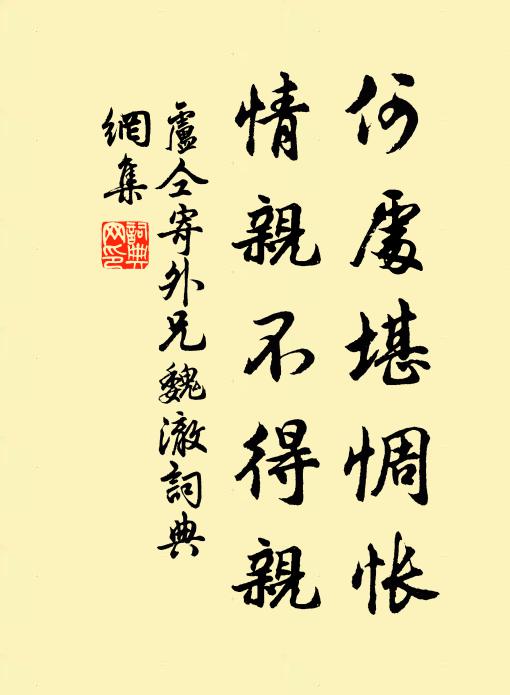 何處堪惆悵
情親不得親
盧仝寄外兄魏澈詞典
網集
詞典網印